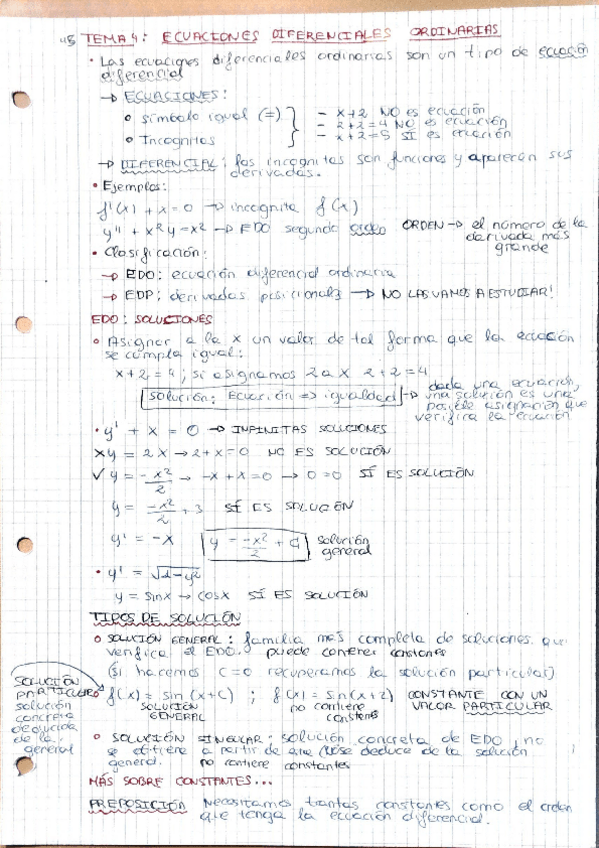 TEMA 4: ECUACIONES DIFERENCIALES ORDINARIAS
• Las ecuaciones diferenciales ordinarias son un tipo de ecuación
diferencial
→ ECUACIONES:
o símbolo igual (=)
o Incognitas
- x+2 NO es ecuación
- 2+2=4 NO es ecuación
- x+2=5 SÍ es ecuación
→ DIFERENCIAL: las incognitas son funciones y aparecen sus
derivadas.
• Ejemplos:
f'(x) + x = 0 → incognita f(x)
y'' + x²y = x² → EDO segundo orden ORDEN → el número de la
derivada más
grande
• Clasificación:
→ EDO: ecuación diferencial ordinaria
→ EDP: derivadas → NO LAS VAMOS A ESTUDIAR!
EDO: SOLUCIONES
o Asignar a la x un valor de tal forma que la ecuación
se cumpla igual:
x+2=4; si asignamos 2 a x 2+2=4
Solución: Ecuación => igualdad → dada una ecuación,
una solución es una
posible asignación que
verifica la ecuación
• y' + x = 0 → INFINITAS SOLUCIONES
x y = 2x → 2+x=0 NO ES SOLUCIÓN
✓ y = -x²/2 → -x+x=0 → 0=0 SÍ ES SOLUCIÓN
y = -x²/2 + 3 SÍ ES SOLUCIÓN
y' = -x y = -x²/2 + C solución
general
• y' = √1-y²
y = sinx → cosx SÍ ES SOLUCIÓN
TIPOS DE SOLUCIÓN
o SOLUCIÓN GENERAL: familia más completa de soluciones que
verifica el EDO. puede contener constantes
(si hacemos C=0 recuperamos la solución particular)
SOLUCIÓN
PARTICULAR
solución
concreta
deducida
de la
general
f(x) = sin(x+C) ; f(x) = sin(x+2) CONSTANTE CON UN
VALOR PARTICULAR
SOLUCIÓN
GENERAL
no contiene
constantes
o SOLUCIÓN SINGULAR: solución concreta de EDO, no
se obtiene a partir de (No se deduce de la solución
general. no contiene constantes
MÁS SOBRE CONSTANTES...
PREPOSICIÓN Necesitamos tantas constantes como el orden
que tenga la ecuación diferencial.